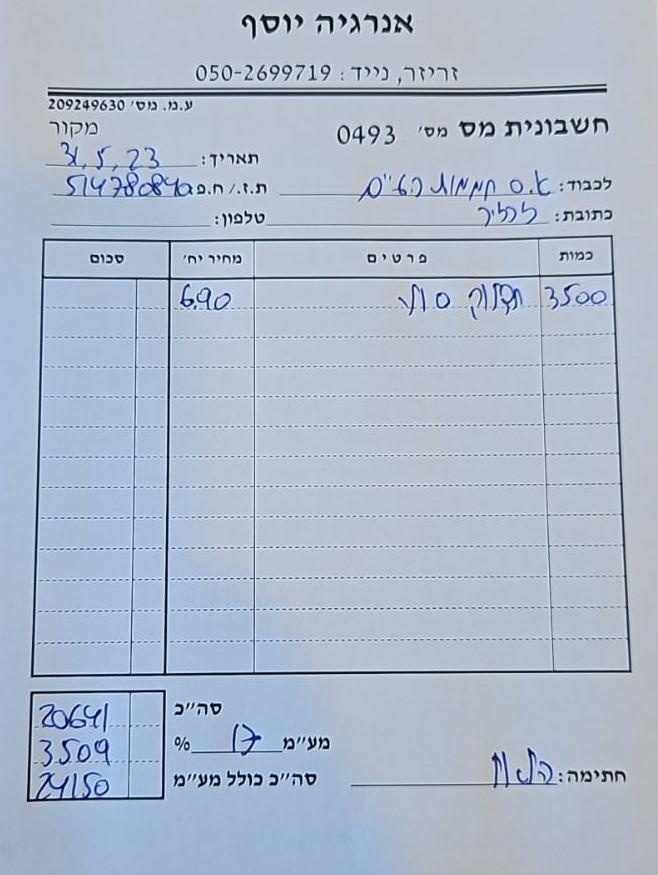 אנרגיה יוסף
זריזר, נייד: 050-2699719
ע.מ. מס׳ 209249630
חשבונית מס מס׳ 0493
מקור
תאריך: 31,5,23
לכבוד: א.ס
ת.ז./ ח.פ. 514780840
כתובת:
טלפון:
כמות פרטים מחיר יח׳ סכום
3500 6.90
סה״כ 20641
מע״מ 17 % 3509
סה״כ כולל מע״מ 24150
חתימה: